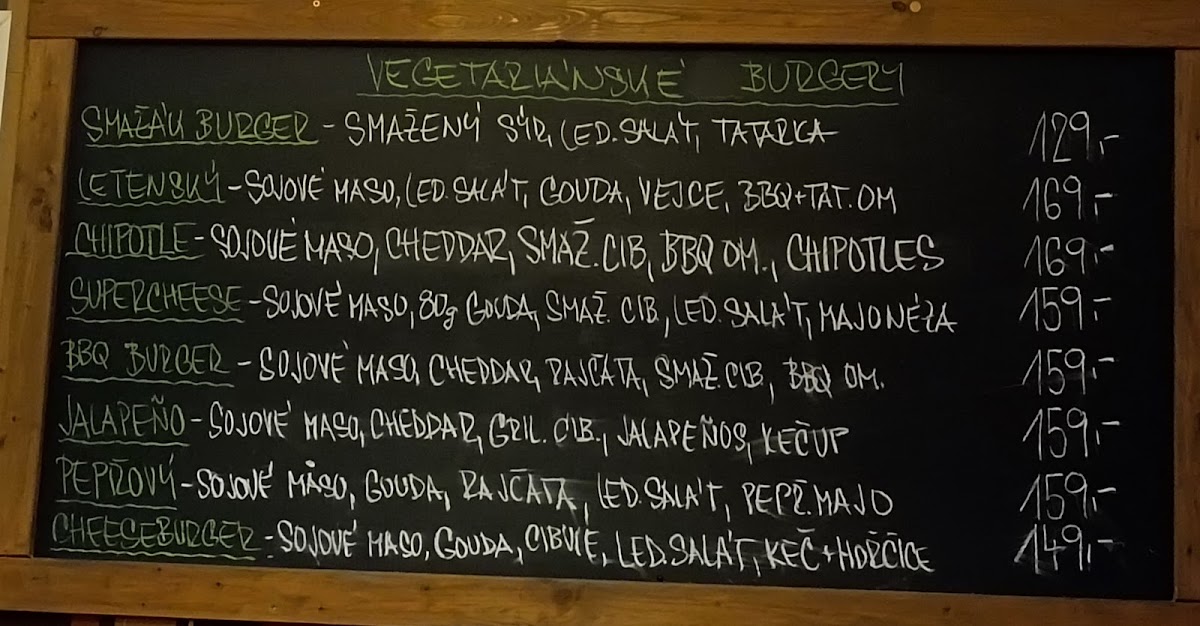 VEGETARIÁNSKÉ BURGERY
SMAŽÁK BURGER - SMAŽENÝ SÝR, LED. SALÁT, TATARKA 129,-
LETENSKÝ - SOJOVÉ MASO, LED. SALÁT, GOUDA, VEJCE, BBQ+TAT. OM 169,-
CHIPOTLE - SOJOVÉ MASO, CHEDDAR, SMAŽ. CIB, BBQ OM., CHIPOTLES 169,-
SUPERCHEESE - SOJOVÉ MASO, 80g GOUDA, SMAŽ. CIB, LED. SALÁT, MAJONÉZA 159,-
BBQ BURGER - SOJOVÉ MASO, CHEDDAR, RAJČATA, SMAŽ. CIB, BBQ OM. 159,-
JALAPEÑO - SOJOVÉ MASO, CHEDDAR, GRIL. CIB., JALAPEÑOS, KEČUP 159,-
PEPŘOVÝ - SOJOVÉ MASO, GOUDA, RAJČATA, LED. SALÁT, PEPŘ. MAJO 159,-
CHEESEBURGER - SOJOVÉ MASO, GOUDA, CIBULE, LED. SALÁT, KEČ + HOŘČICE 149,-